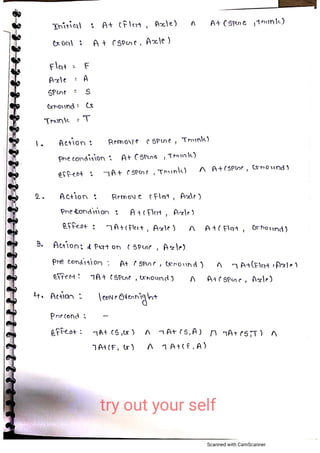 Initial : At (Flat , Axle) ∧ At (Spare , Trunk)
Goal : At (Spare , Axle)
Flat = F
Axle : A
Spare : S
Ground : G
Trunk = T
1. Action : Remove (Spare , Trunk)
Pre condition : At (Spare , Trunk)
effect : ¬At (Spare , Trunk) ∧ At (Spare , Ground)
2. Action : Remove (Flat , Axle)
Precondition : At (Flat , Axle)
Effect : ¬At (Flat , Axle) ∧ At (Flat , Ground)
3. Action: Put on (Spare , Axle)
Pre condition : At (Spare , Ground) ∧ ¬At (Flat , Axle)
Effect : ¬At (Spare , Ground) ∧ At (Spare , Axle)
4. Action : leave Overnight
Precond : -
Effect : ¬At (S,G) ∧ ¬At (S,A) ∧ ¬At (S,T) ∧
¬At (F, G) ∧ ¬At (F,A)
try out your self
Scanned with CamScanner